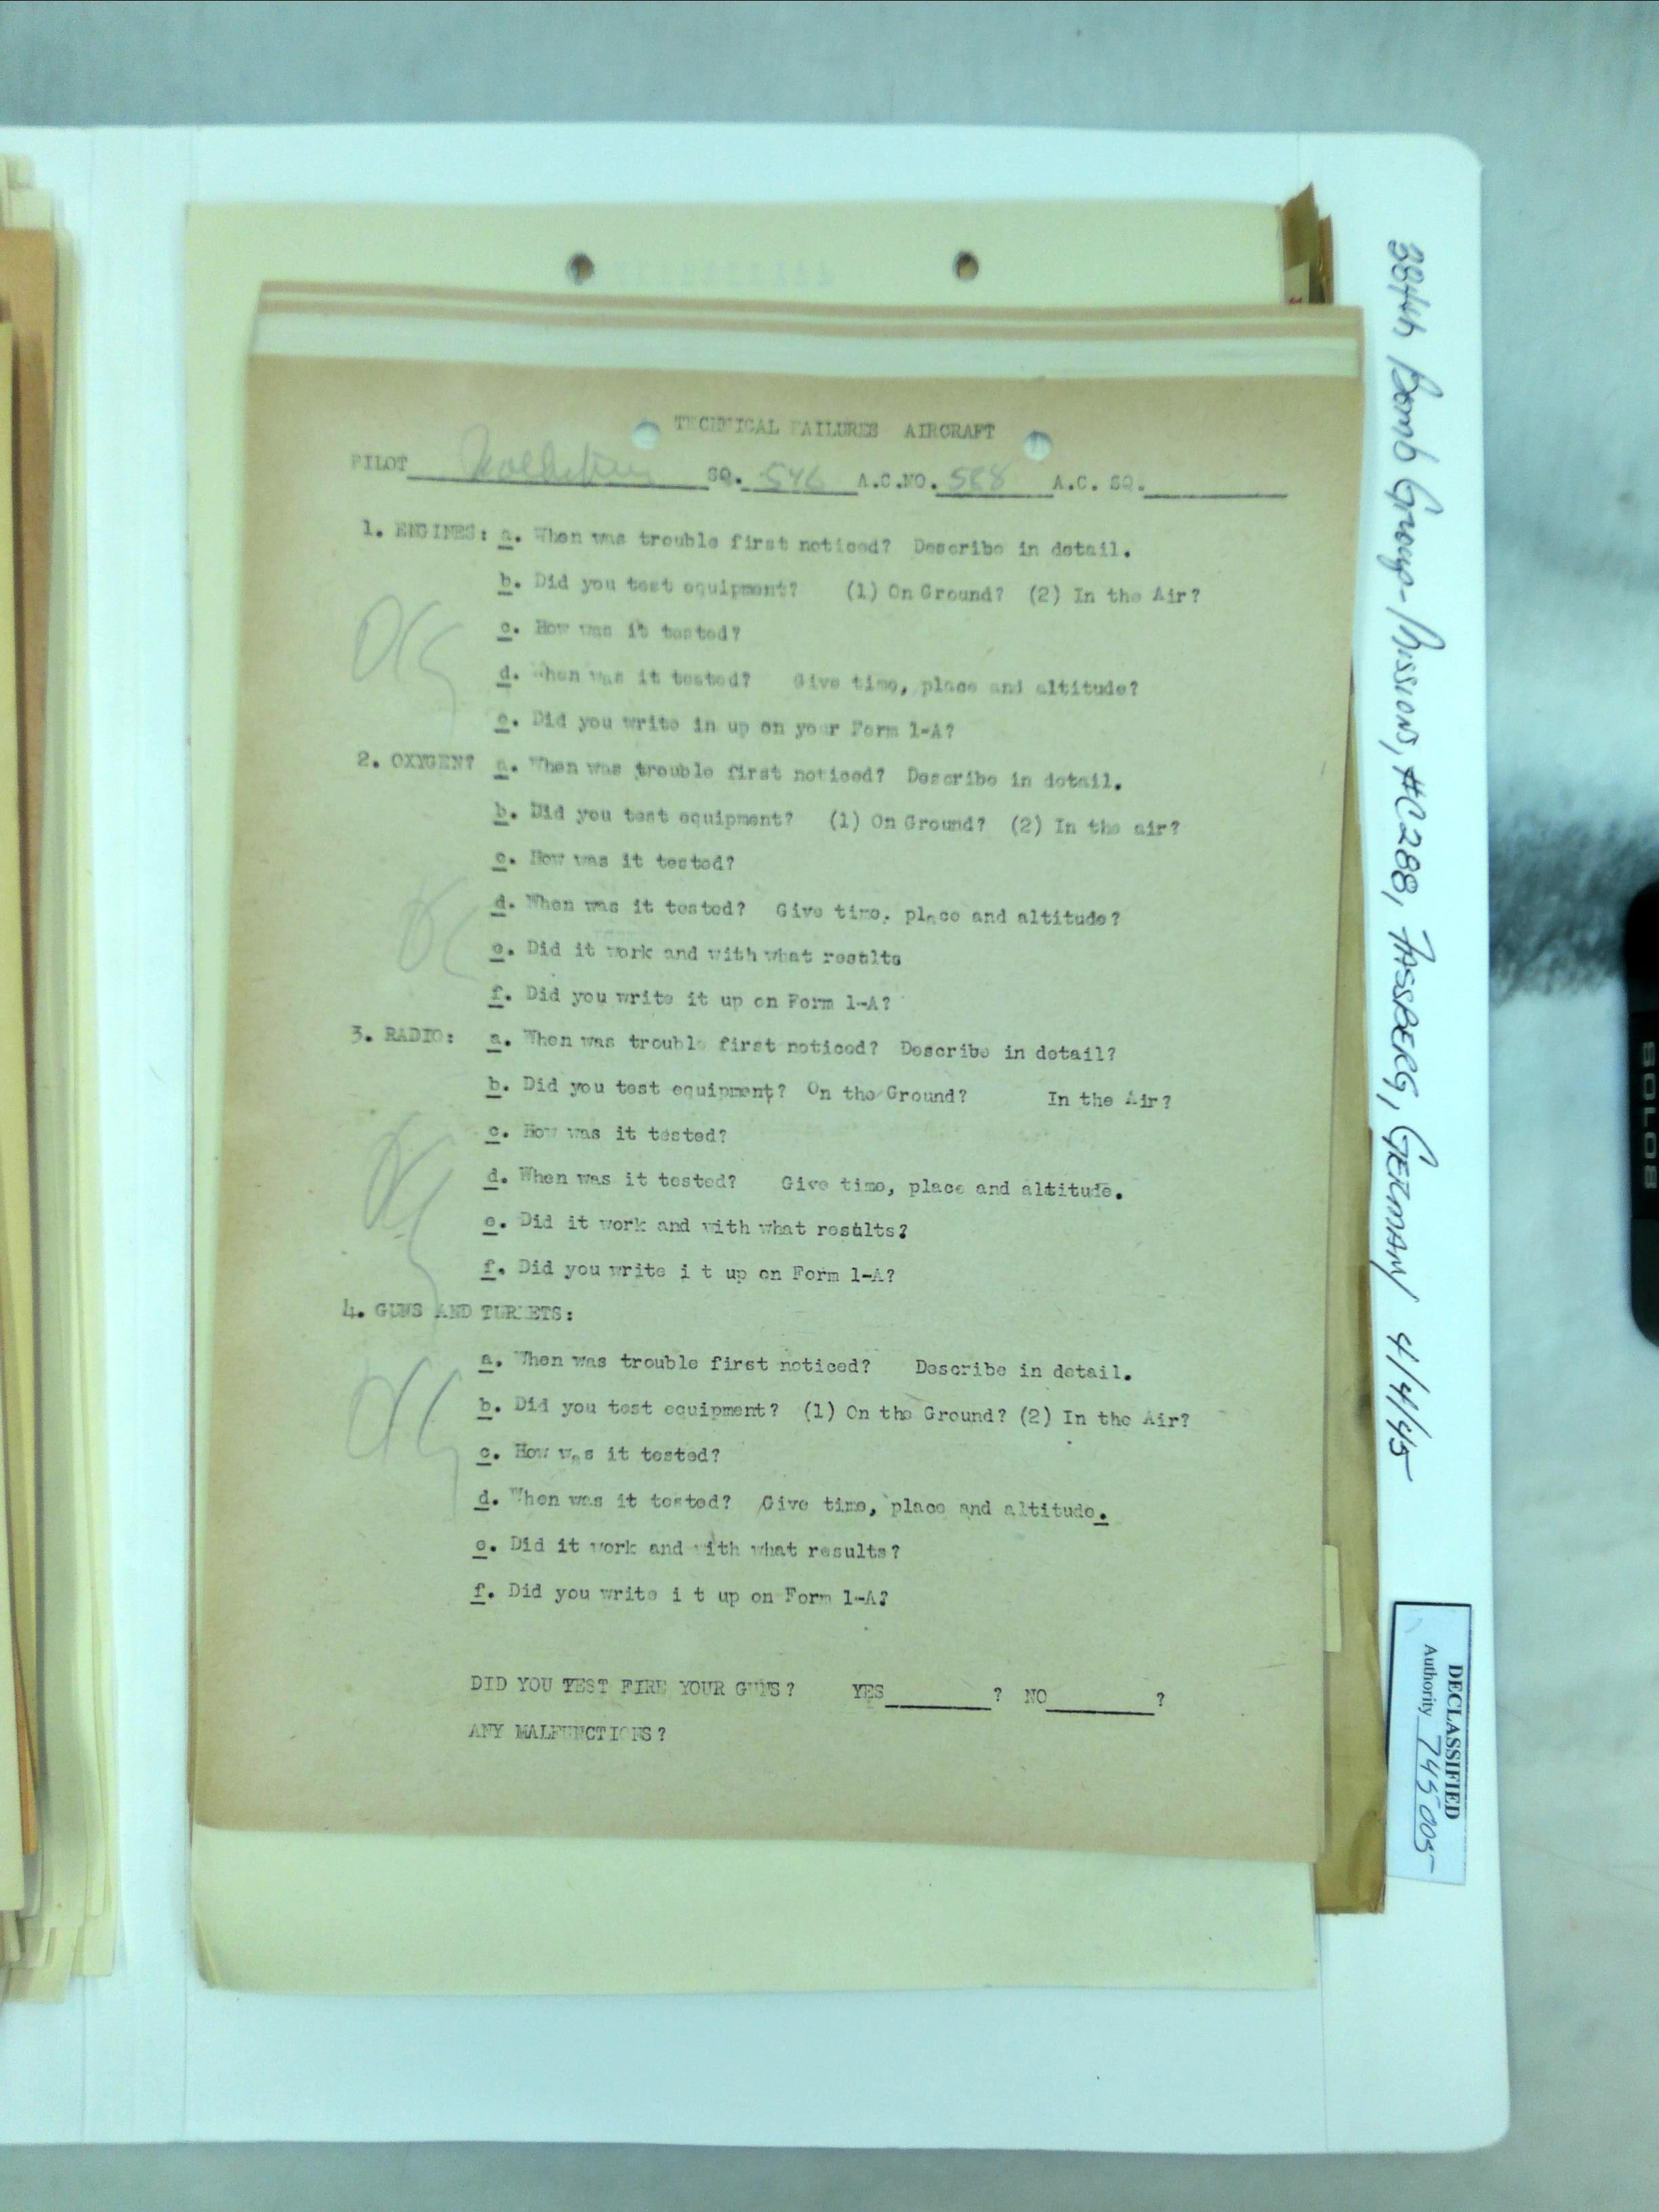 TECHNICAL FAILURES AIRCRAFT
PILOT SQ. 546 A.C.NO. 588 A.C. SQ.
1. ENGINES: a. When was trouble first noticed? Describe in detail.
b. Did you test equipment? (1) On Ground? (2) In the Air?
c. How was it tested?
d. When was it tested? Give time, place and altitude?
e. Did you write in up on your Form 1-A?
OK
2. OXYGEN? a. When was trouble first noticed? Describe in detail.
b. Did you test equipment? (1) On Ground? (2) In the air?
c. How was it tested?
d. When was it tested? Give time, place and altitude?
e. Did it work and with what results
f. Did you write it up on Form 1-A?
OK
3. RADIO: a. When was trouble first noticed? Describe in detail?
b. Did you test equipment? On the Ground? In the Air?
c. How was it tested?
d. When was it tested? Give time, place and altitude.
e. Did it work and with what results?
f. Did you write i t up on Form 1-A?
OK
4. GUNS AND TURRETS:
a. When was trouble first noticed? Describe in detail.
b. Did you test equipment? (1) On the Ground? (2) In the Air?
c. How was it tested?
d. When was it tested? Give time, place and altitude.
e. Did it work and with what results?
f. Did you write i t up on Form 1-A?
OK
DID YOU TEST FIRE YOUR GUNS? YES ? NO ?
ANY MALFUNCTIONS?
384th Bomb Group-Missions, #C288, FASSBERG, GERMANY 4/4/45
DECLASSIFIED
Authority 745005
SOLO8